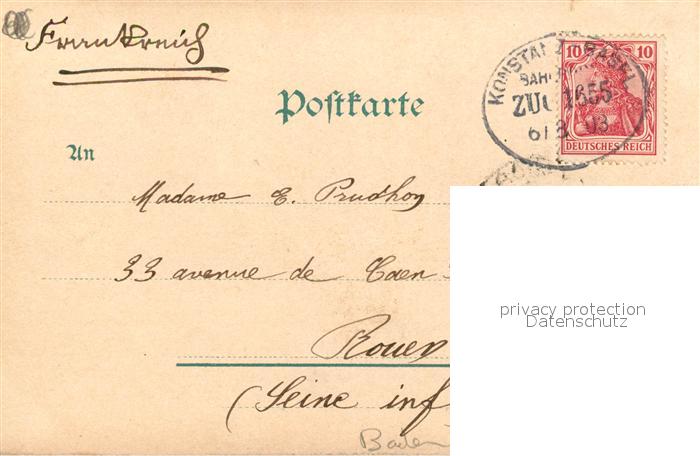 Frankreich
Postkarte
KONSTANZ BASEL
BAHNPOST
ZUG 1655
6/8 03
10 10
DEUTSCHES REICH
An
Madame E. Prudhon
33 avenue de Caen
Rouen
(Seine inf
privacy protection
Datenschutz
Baden